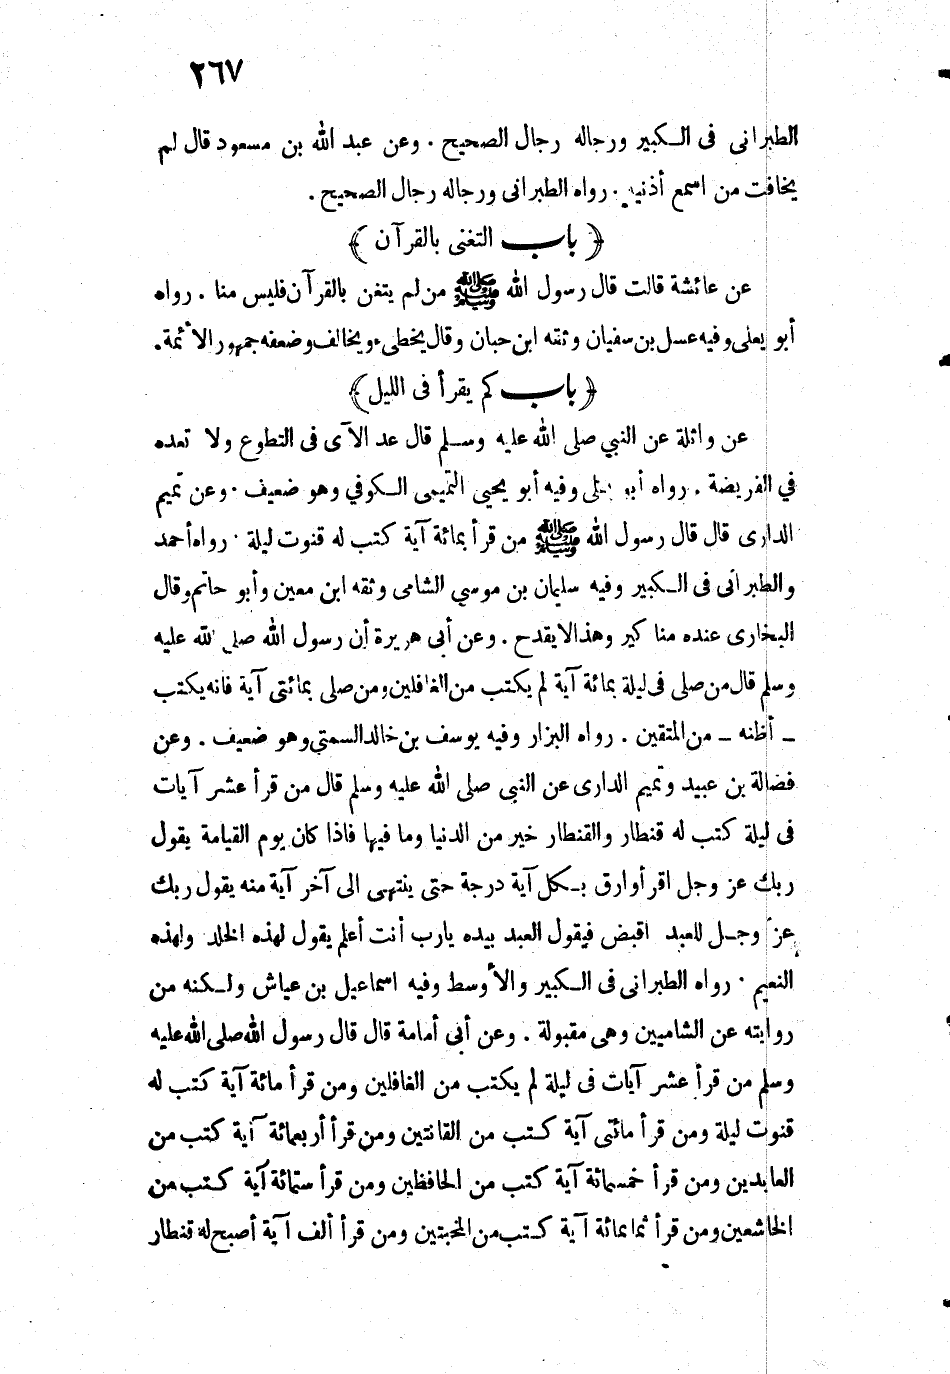 ٢٦٧
الطبرانى فى الـكبير ورجاله رجال الصحيح . وعن عبد الله بن مسعود قال لم
يخافت من اسمع أذنيه . رواه الطبرانى ورجاله رجال الصحيح .
﴿ باب التغنى بالقرآن ﴾
عن عائشة قالت قال رسول الله ﷺ من لم يتغن بالقرآن فليس منا . رواه
أبو يعلى وفيه عسل بن سفيان وثقه ابن حبان وقال يخطىء ويخالف وضعفه جمهور الأئمة .
﴿ باب كم يقرأ فى الليل ﴾
عن واثلة عن النبي صلى الله عليه وسـلم قال عد الآى فى التطوع ولا تعده
في الفريضة . رواه أبو يعلى وفيه أبو يحيى التميمى الـكوفي وهو ضعيف . وعن تميم
الدارى قال قال رسول الله ﷺ من قرأ بمائة آية كتب له قنوت ليلة . رواه أحمد
والطبرانى فى الـكبير وفيه سليمان بن موسي الشامى وثقه ابن معين وأبو حاتم وقال
البخارى عنده مناكير وهذا لا يقدح . وعن أبى هريرة أن رسول الله صلى الله عليه
وسلم قال من صلى فى ليلة بمائة آية لم يكتب من الغافلين ومن صلى بمائتى آية فانه يكتب
ـ أظنه ـ من المتقين . رواه البزار وفيه يوسف بن خالد السمتى وهو ضعيف . وعن
فضالة بن عبيد وتميم الدارى عن النبى صلى الله عليه وسلم قال من قرأ عشر آيات
فى ليلة كتب له قنطار والقنطار خير من الدنيا وما فيها فاذا كان يوم القيامة يقول
ربك عز وجل اقرأ وارق بـكل آية درجة حتى ينتهى الى آخر آية منه يقول ربك
عز وجـل للعبد اقبض فيقول العبد بيده يارب أنت أعلم يقول لهذه الخلد ولهذه
النعيم . رواه الطبرانى فى الـكبير والأوسط وفيه اسماعيل بن عياش ولـكنه من
روايته عن الشاميين وهى مقبولة . وعن أبى أمامة قال قال رسول الله صلى الله عليه
وسلم من قرأ عشر آيات فى ليلة لم يكتب من الغافلين ومن قرأ مائة آية كتب له
قنوت ليلة ومن قرأ مائتى آية كـتب من القانتين ومن قرأ أربعمائة آية كتب من
العابدين ومن قرأ خمسمائة آية كتب من الحافظين ومن قرأ ستمائة آية كـتب من
الخاشعين ومن قرأ ثمانمائة آية كـتب من المخبتين ومن قرأ ألف آية أصبح له قنطار